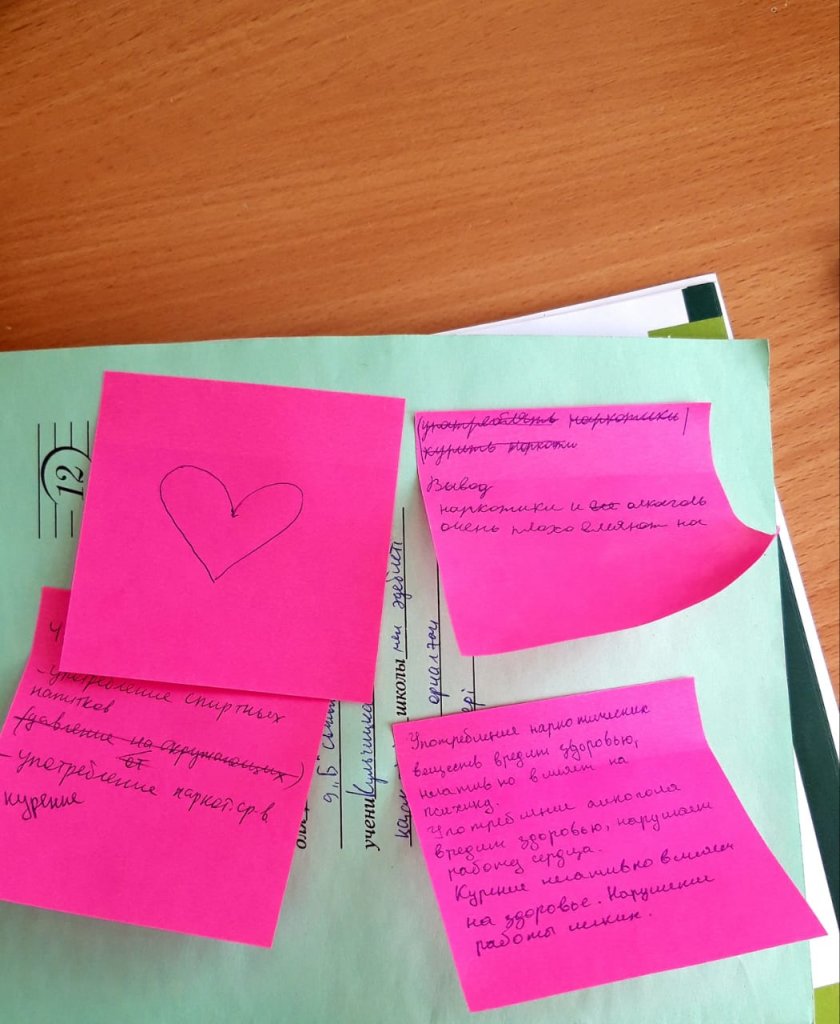 12
(употреблять наркотики)
(курить
Вывод
наркотики и все алкоголь
очень плохо влияют на
- употребление спиртных
напитков
(давление на окружающих)
от
- употребление наркот. ср-в
курение
Употребление наркотических
веществ вредит здоровью,
негативно влияет на
психику.
Употребление алкоголя
вредит здоровью, нарушает
работу сердца.
Курение негативно влияет
на здоровье. Нарушение
работы легких.
9 "Б"
учени
школы мен әдебиеті